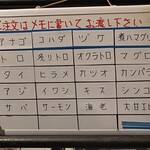 注文はメモに書いてお渡し下さい
アナゴ コハダ ヅケ 煮ハマグリ
トロ 炙リトロ オクラトロ マグロ
タイ ヒラメ カツオ カンパ
アジ イワシ キス シンコ
サバ サーモン 海老 大甘エビ